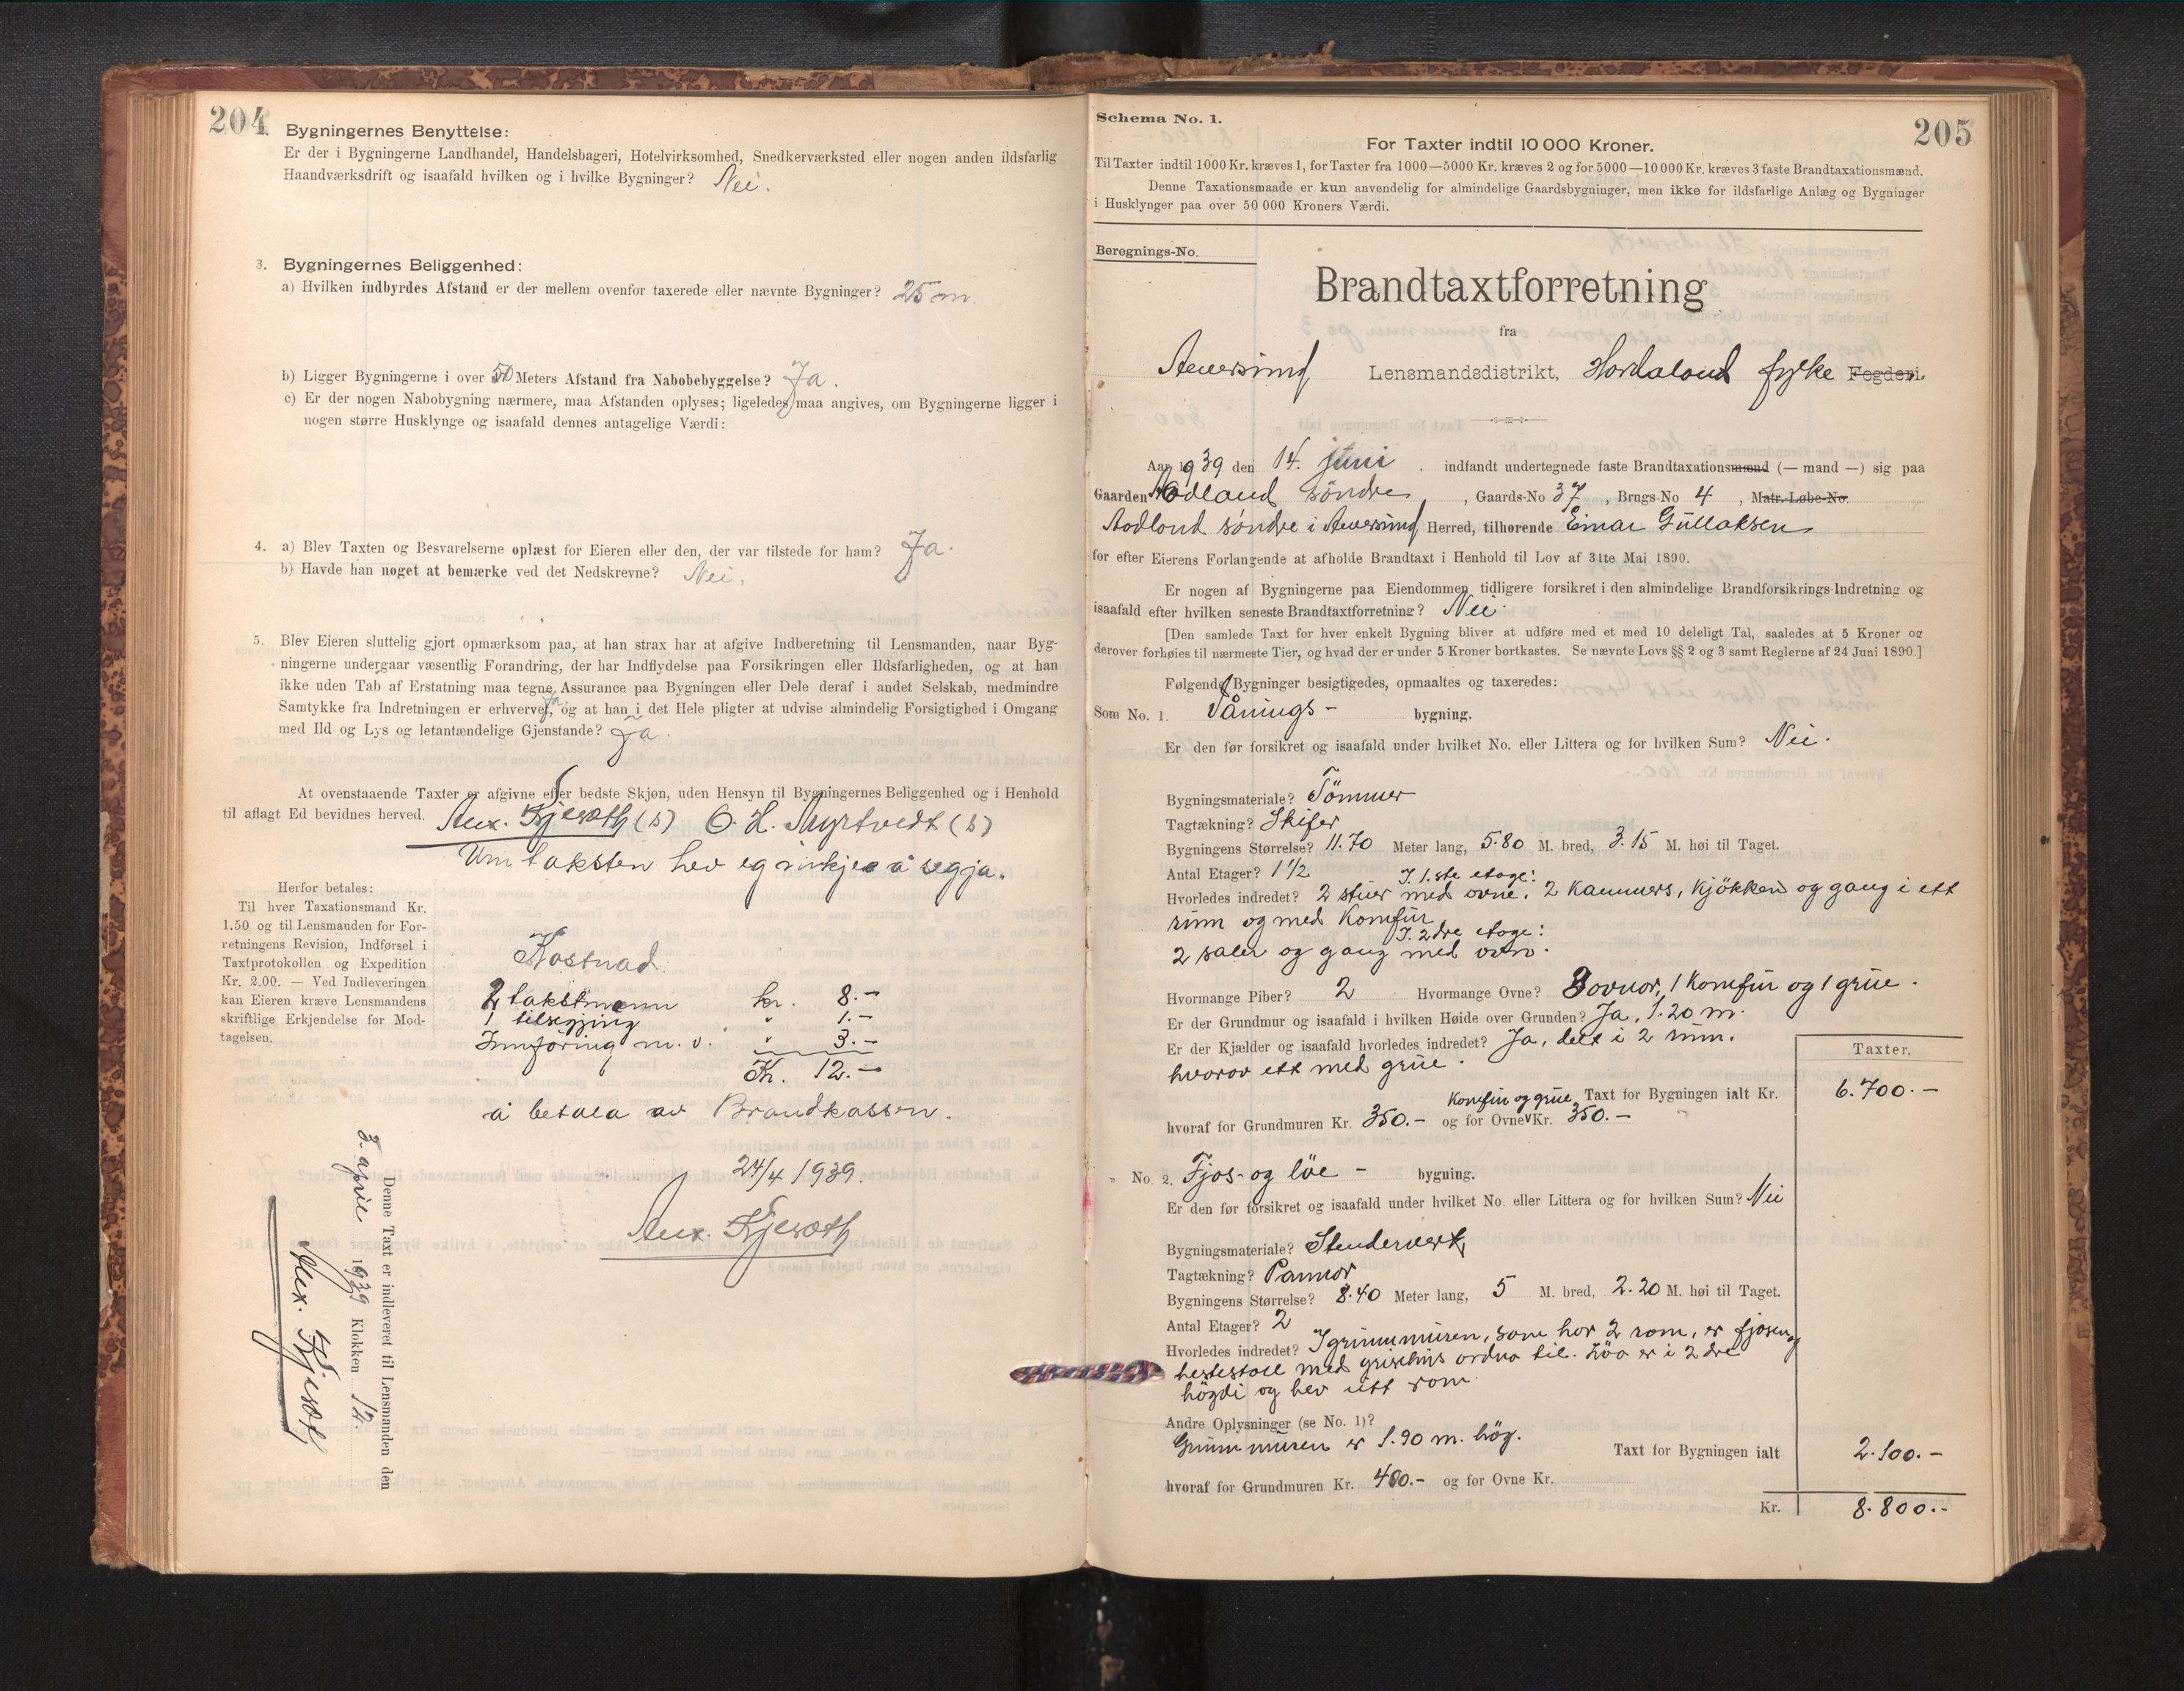 204
Bygningernes Benyttelse:
Er der i Bygningerne Landhandel, Handelsbageri, Hotelvirksomhed, Snedkerværksted eller nogen anden ildsfarlig
Haandværksdrift og isaafald hvilken og i hvilke Bygninger? Nei.
3. Bygningernes Beliggenhed:
a) Hvilken indbyrdes Afstand er der mellem ovenfor taxerede eller nævnte Bygninger? 25 m.
b) Ligger Bygningerne i over 50 Meters Afstand fra Nabobebyggelse? Ja.
c) Er der nogen Nabobygning nærmere, maa Afstanden oplyses; ligeledes maa angives, om Bygningerne ligger i
nogen større Husklynge og isaafald dennes antagelige Værdi:
4. a) Blev Taxten og Besvarelserne oplæst for Eieren eller den, der var tilstede for ham? Ja.
b) Havde han noget at bemærke ved det Nedskrevne? Nei.
5. Blev Eieren sluttelig gjort opmærksom paa, at han strax har at afgive Indberetning til Lensmanden, naar Byg-
ningerne undergaar væsentlig Forandring, der har Indflydelse paa Forsikringen eller Ildsfarligheden, og at han
ikke uden Tab af Erstatning maa tegne Assurance paa Bygningen eller Dele deraf i andet Selskab, medmindre
Samtykke fra Indretningen er erhvervet, Ja. og at han i det Hele pligter at udvise almindelig Forsigtighed i Omgang
med Ild og Lys og letantændelige Gjenstande? Ja.
At ovenstaaende Taxter er afgivne efter bedste Skjøn, uden Hensyn til Bygningernes Beliggenhed og i Henhold
til aflagt Ed bevidnes herved. (s) O. H. Myrtvedt (s)
Um taksten hev eg inkje å segja.
Herfor betales:
Til hver Taxationsmand Kr.
1.50 og til Lensmanden for For-
retningens Revision, Indførsel i
Taxtprotokollen og Expedition
Kr. 2.00. — Ved Indleveringen
kan Eieren kræve Lensmandens
skriftlige Erkjendelse for Mod-
tagelsen.
Kostnad
2 takstmenn kr. 8.-
1 tilsegjing " 1.-
Innføring m. v. " 3.-
Kr. 12.-
å betala av Brandkassen.
24/4 1939.
Denne Taxt er indleveret til Lensmanden den
3. april 1939 Klokken 12.
205
Schema No. 1.
For Taxter indtil 10 000 Kroner.
Til Taxter indtil 1000 Kr. kræves 1, for Taxter fra 1000—5000 Kr. kræves 2 og for 5000—10 000 Kr. kræves 3 faste Brandtaxationsmænd.
Denne Taxationsmaade er kun anvendelig for almindelige Gaardsbygninger, men ikke for ildsfarlige Anlæg og Bygninger
i Husklynger paa over 50 000 Kroners Værdi.
Beregnings-No.
Brandtaxtforretning
fra
Lensmandsdistrikt, Hordaland fylke Fogderi.
Aar 1939 den 14. juni. indfandt undertegnede faste Brandtaxationsmænd (— mand —) sig paa
Gaarden Rødland søndre, Gaards-No 37, Brugs-No 4, Matr.-Løbe-No.
søndre i Herred, tilhørende Einar Gullaksen
for efter Eierens Forlangende at afholde Brandtaxt i Henhold til Lov af 31te Mai 1890.
Er nogen af Bygningerne paa Eiendommen tidligere forsikret i den almindelige Brandforsikrings-Indretning og
isaafald efter hvilken seneste Brandtaxtforretning? Nei.
[Den samlede Taxt for hver enkelt Bygning bliver at udføre med et med 10 deleligt Tal, saaledes at 5 Kroner og
derover forhøies til nærmeste Tier, og hvad der er under 5 Kroner bortkastes. Se nævnte Lovs §§ 2 og 3 samt Reglerne af 24 Juni 1890.]
Følgende Bygninger besigtigedes, opmaaltes og taxeredes:
Som No. 1. Vånings - bygning.
Er den før forsikret og isaafald under hvilket No. eller Littera og for hvilken Sum? Nei.
Bygningsmateriale? Tömmer
Tagtækning? Skifer
Bygningens Størrelse? 11.70 Meter lang, 5.80 M. bred, 3.15 M. høi til Taget.
Antal Etager? 1 1/2 I 1.ste etage:
Hvorledes indredet? 2 stuer med ovne. 2 kammers, kjökken og gang i ett
rum og med komfur.
I. 2dre etage:
2 saler og gang med ovn.
Hvormange Piber? 2 Hvormange Ovne? 3 ovnor, 1 komfur og 1 grue.
Er der Grundmur og isaafald i hvilken Høide over Grunden? Ja, 1.20 m.
Er der Kjælder og isaafald hvorledes indredet? Ja, delt i 2 rum.
hvorav ett med grue.
Taxter.
komfur og grue Taxt for Bygningen ialt Kr. 6.700.-
hvoraf for Grundmuren Kr. 350.- og for Ovne Kr. 350.-
" No. 2. Fjos- og löe - bygning.
Er den før forsikret og isaafald under hvilket No. eller Littera og for hvilken Sum? Nei
Bygningsmateriale? Stenderverk
Tagtækning? Pannor
Bygningens Størrelse? 8.40 Meter lang, 5 M. bred, 2.20 M. høi til Taget.
Antal Etager? 2
Hvorledes indredet? I grunnmuren, som har 2 rom, er fjosen og
hestestall med grisehus ordna til. Löa er i 2dre
högdi og hev ett rom.
Andre Oplysninger (se No. 1)?
Grunnmuren er 1.90 m. hög. Taxt for Bygningen ialt 2.100.-
hvoraf for Grundmuren Kr. 480.- og for Ovne Kr.
Kr. 8.800.-